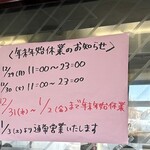 〈年末年始休業のお知らせ〉
12/29(月) 11:00〜23:00
12/30(火) 11:00〜23:00
12/31(水)〜1/2(金)まで年末年始休業
1/3(土)より通常営業いたします